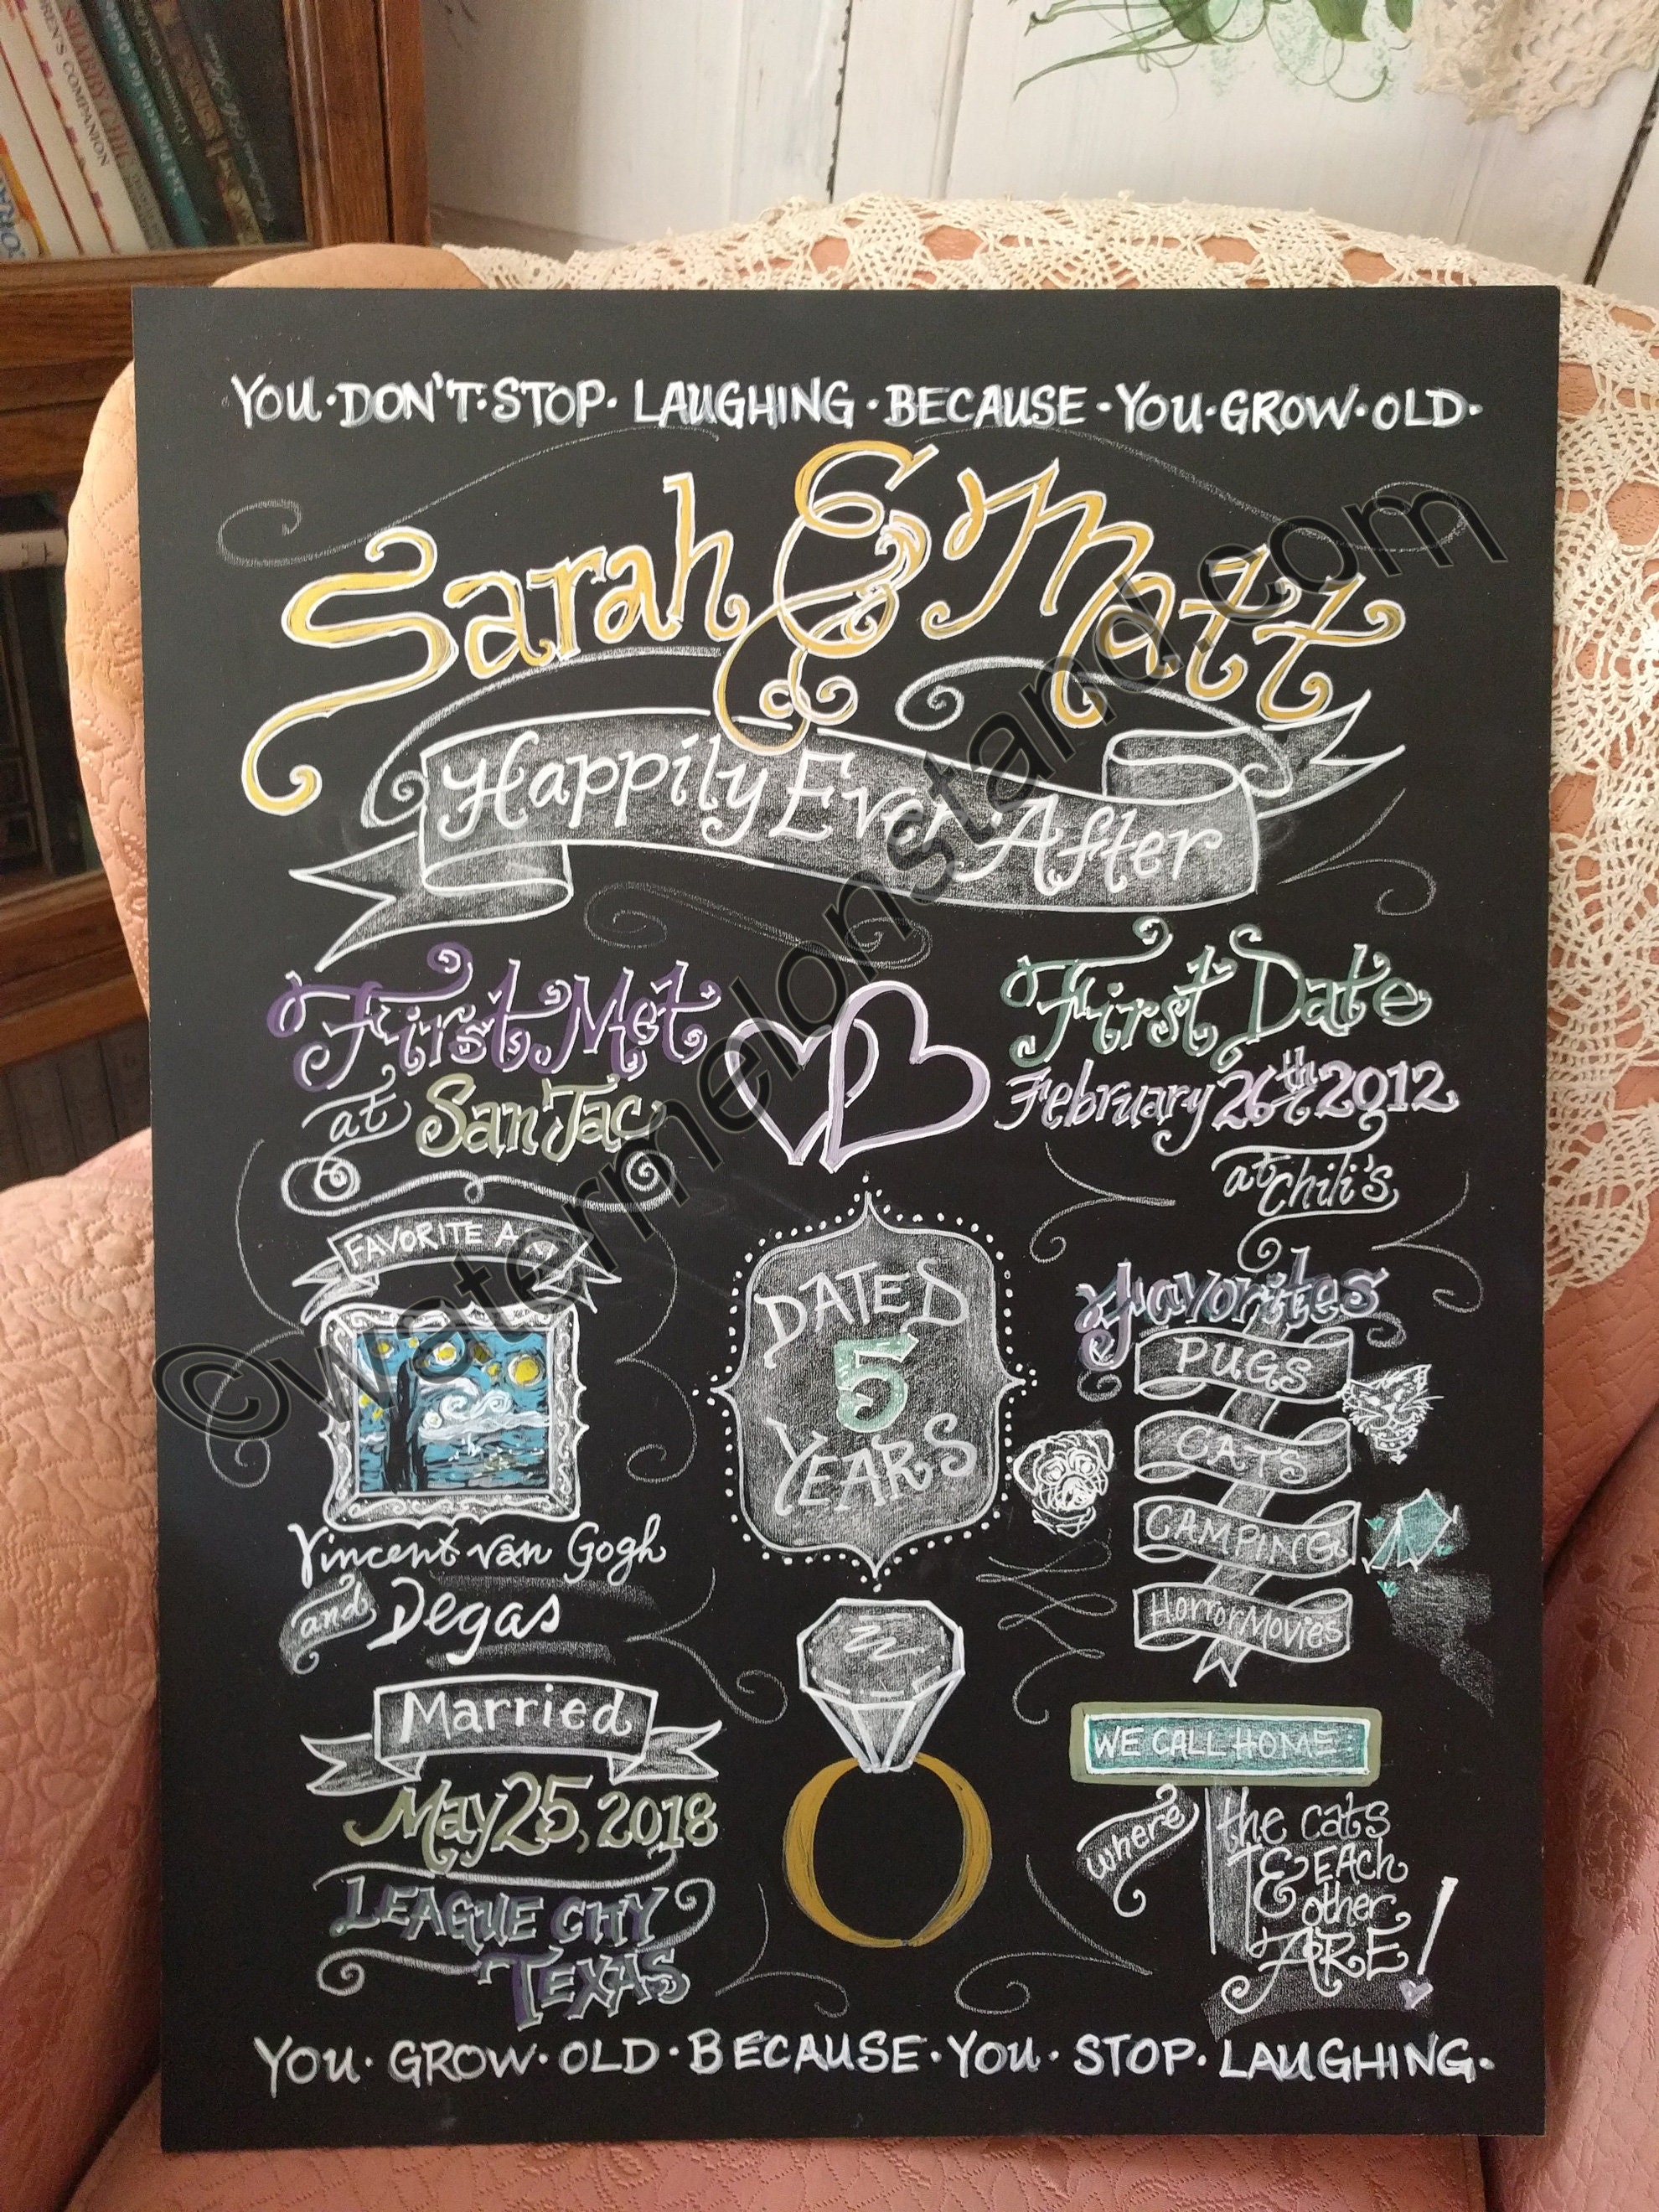 YOU·DON'T·STOP·LAUGHING·BECAUSE·YOU·GROW·OLD·
Sarah & Matt
Happily Ever After
First Met
at San Jac
First Date
February 26th 2012
at Chili's
FAVORITE
Vincent van Gogh
and Degas
DATED
5
YEARS
Favorites
PUGS
CATS
CAMPING
Horror Movies
Married
May 25, 2018
LEAGUE CITY
TEXAS
WE CALL HOME
where the cats
& EACH
other
ARE!
YOU·GROW·OLD·BECAUSE·YOU·STOP·LAUGHING·
©watermelonstand.com
SHABBY CHIC
COMPANION